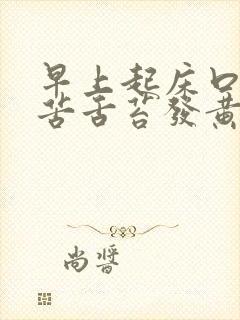 早上起床口
苦舌苔發黃
尚醬